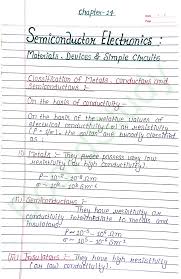 Chapter-14
Semiconductor Electronics :
Materials, Devices & Simple Circuits
Classification of Metals, Conductors and
Semiconductors :-
On the basis of conductivity
On the basis of the relative values of
electrical conductivity (σ) or resistivity
(ρ = 1/σ), the solids are broadly classified
as :
(i) Metals :- They possess very low
resistivity (or high conductivity).
ρ ~ 10⁻² - 10⁻⁸ Ωm
σ ~ 10² - 10⁸ Sm⁻¹
(ii) Semiconductors :-
They have resistivity or
conductivity intermediate to metals and
insulators.
ρ ~ 10⁻⁵ - 10⁶ Ωm
σ ~ 10⁵ - 10⁻⁶ Sm⁻¹
(iii) Insulators :- They have high resistivity
(or low conductivity).